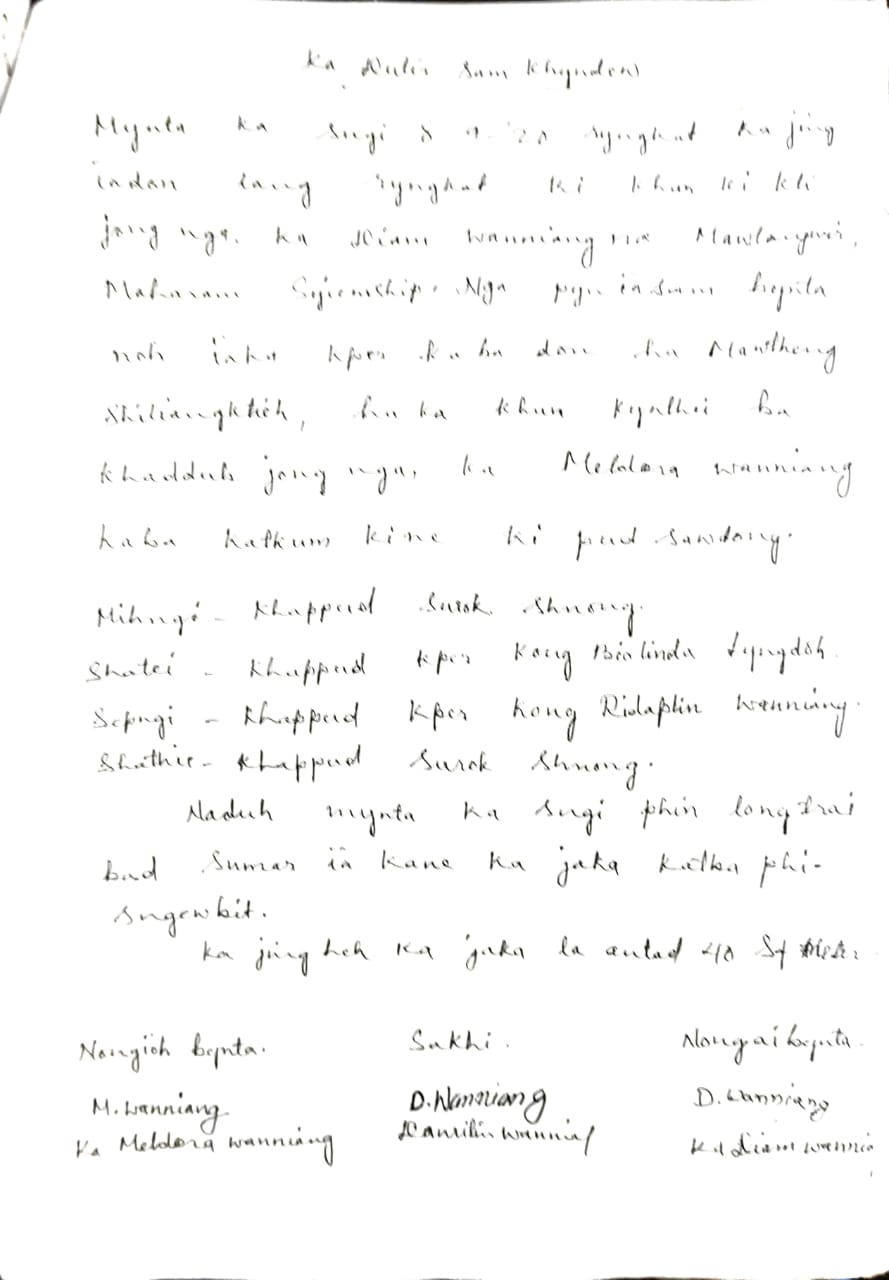 Ka Dulir Sam Khyndew
Mynta ka sngi 8 9 '20 synghat ka jing
iadon lang synghat ki khun ki kti
jong nga. ka Diam wanniang na Mawlangwir,
Maharam Syiemship. Nga pyn ia sam bynta
noh ïaka kper kaba don ha Mawtheng
Shiliangktieh, ha ka khun kynthei ba
khadduh jong nga, ka Meldora wanniang
kaba katkum kine ki pud sawdong.
Mihngi - Khappud Surok Shnong.
Shatei - Khappud kper kong Bialinda Lyngdoh.
Sepngi - Khappud Kper kong Ridaplin Wanniang.
Shathie - Khappud Surok Shnong.
Naduh mynta ka sngi phin long trai
bad sumar ïa kane ka jaka katba phi-
sngewbit.
ka jing heh ka jaka la antad 40 Sq Meter
Nongïoh bynta. Sakhi. Nongai bynta.
M. Wanniang D. Wanniang D. Wanniang
Ka Meldora wanniang wanniang Ka Diam wannia